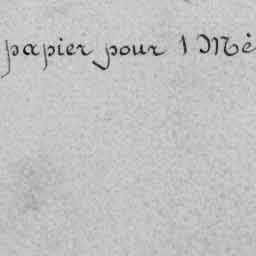 papier pour 1 Mè